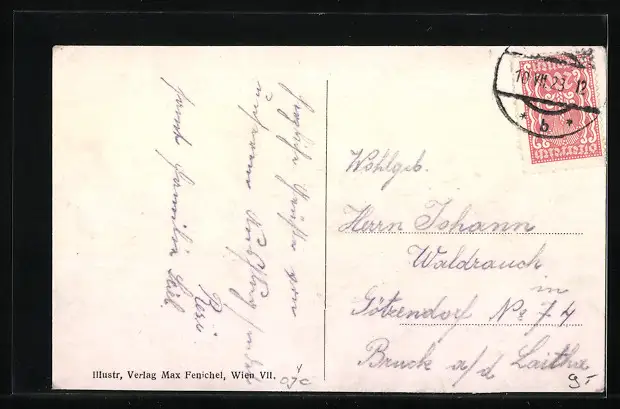 10.VII.23. 12
* b *
herzliche Grüße von
unserem Ausflug
samt Familie
Resi
Wohlgeb.
Herrn Johann
Waldrauch
in
Götzendorf No 74
Bruck a/d Laitha
Illustr, Verlag Max Fenichel, Wien VII.
9,-